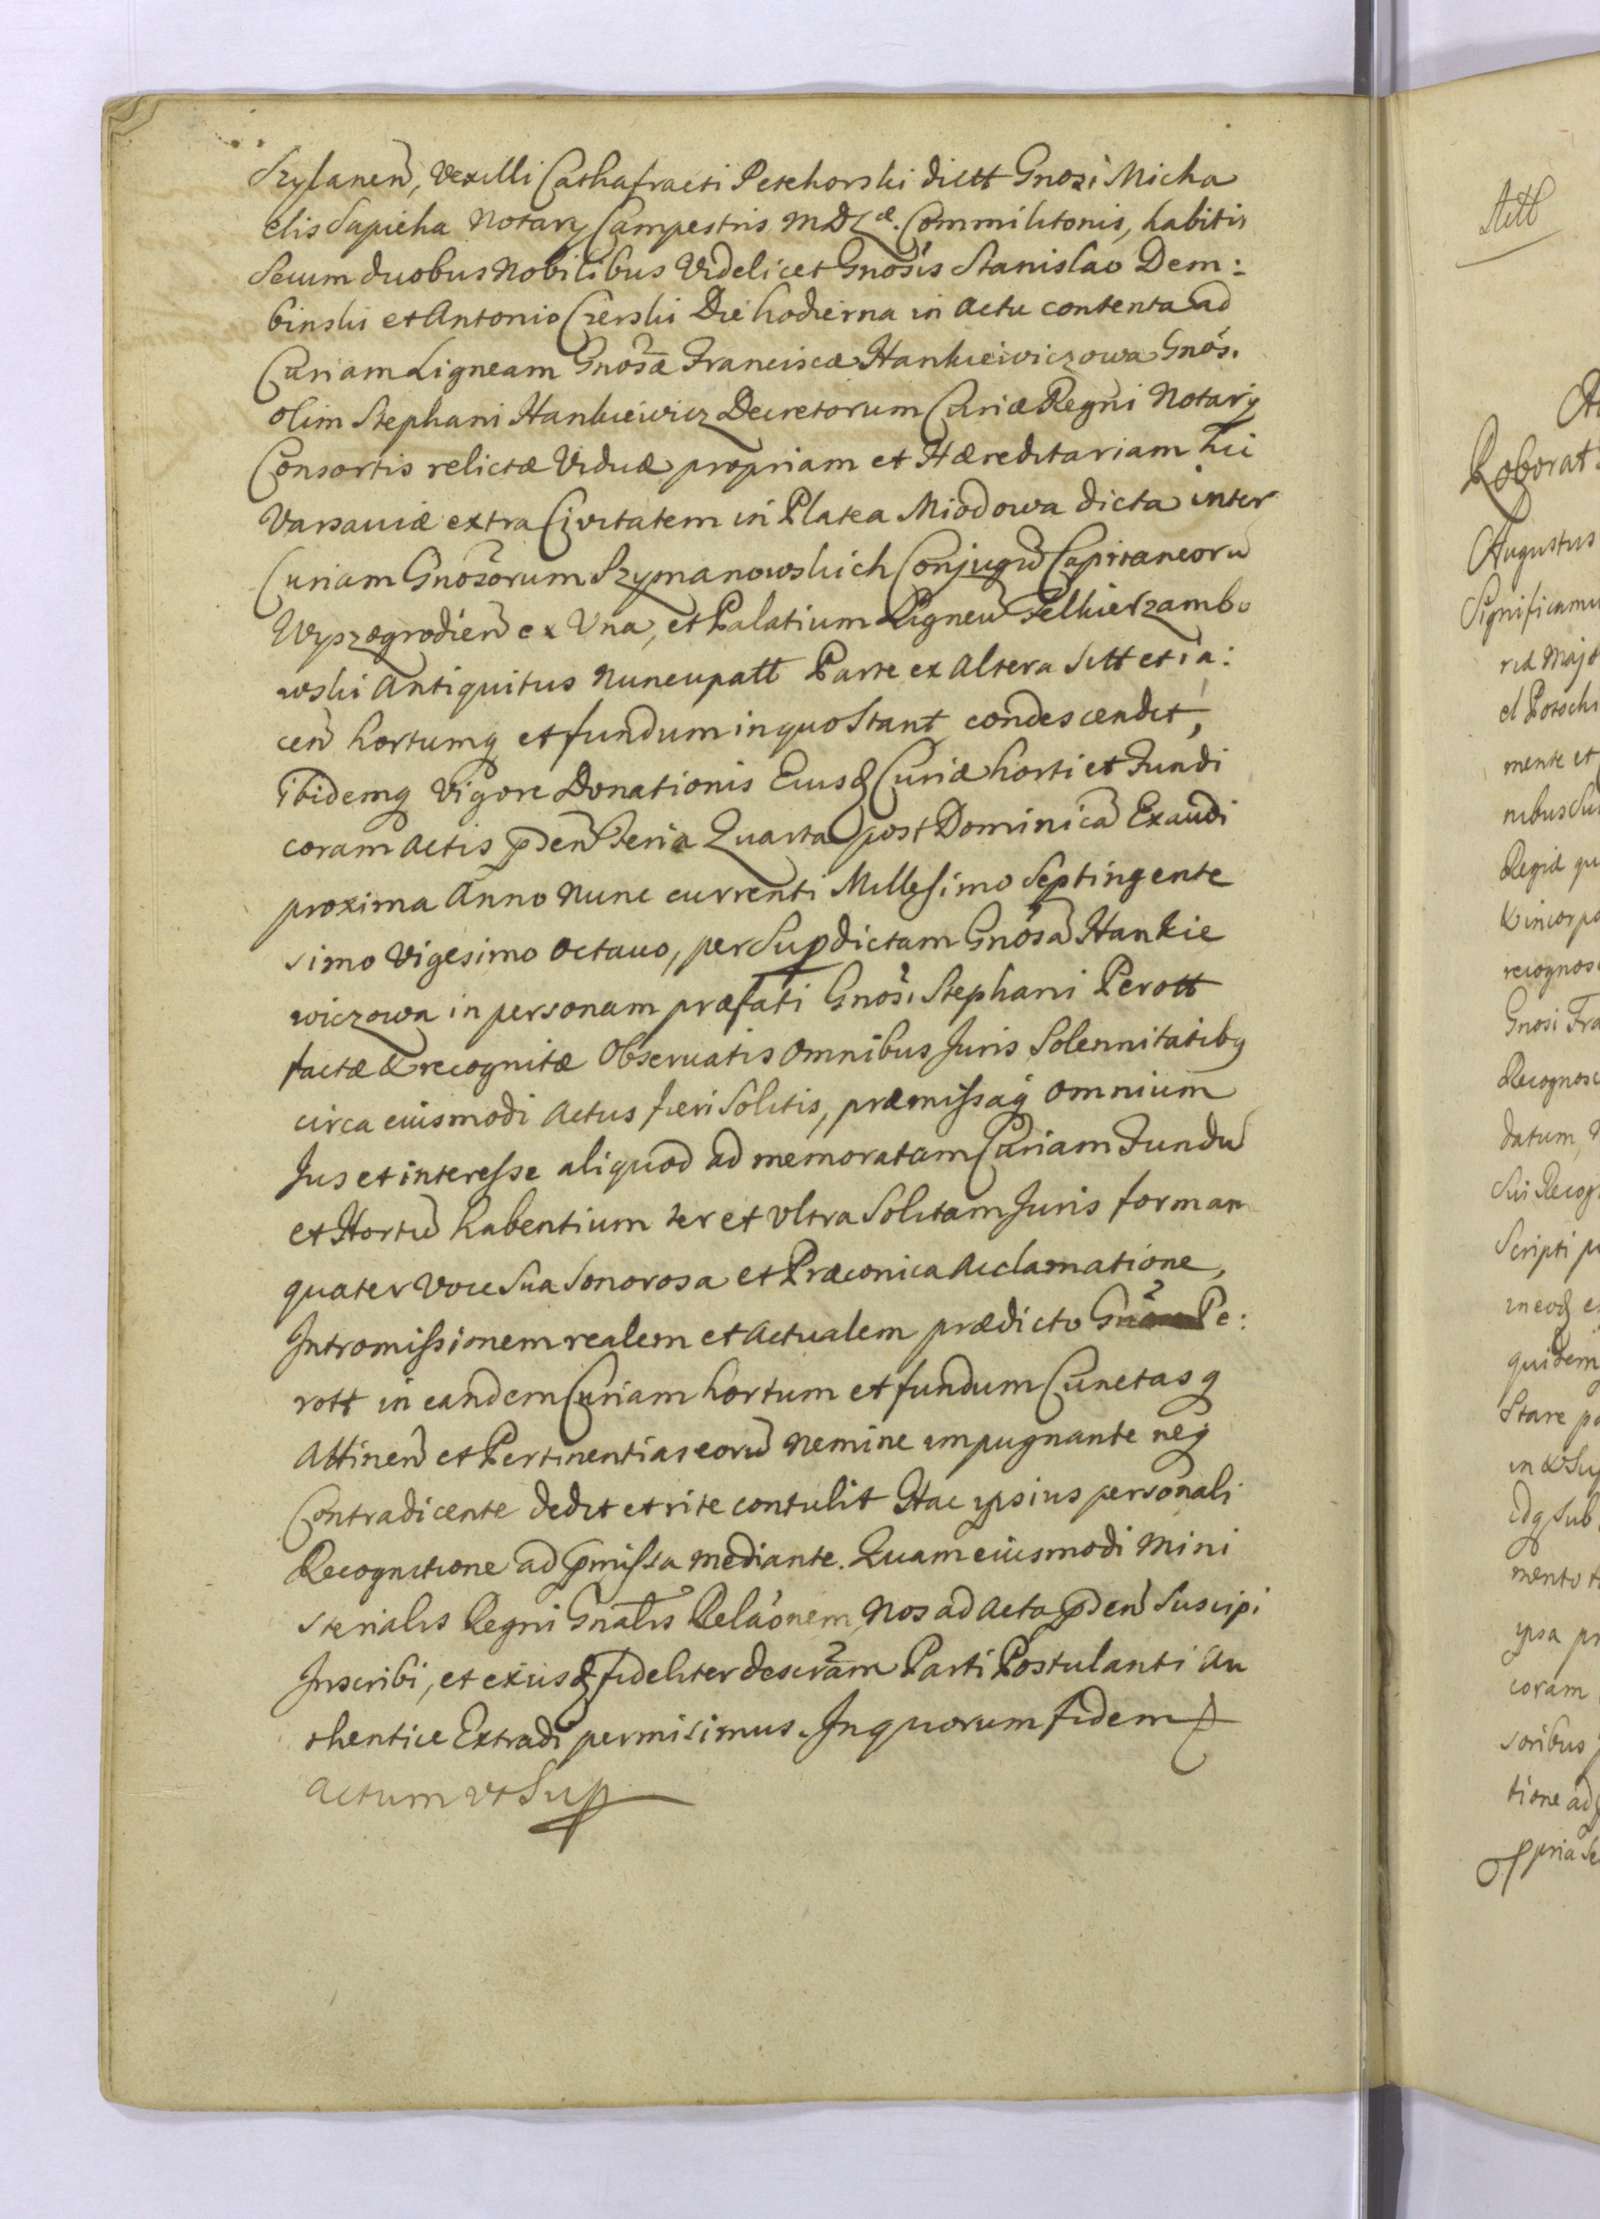 Szylanen, Vexilli Cathafracti Petyhorski dictt Gnosi Micha
elis Sapieha Notary Campestris MDLæ. Commilitonis, habitis
Secum duobus Nobilibus Videlicet Gnosis Stanislao Dem:
binski et Antonio Czerski Die hodierna in Actu contenta ad
Curiam Ligneam Gnosæ Franciscæ Hankiewiczowa Gnos.
olim Stephani Hankiewicz Decretorum Curiæ Regni Notary
Consortis relictæ Viduæ propriam et Hæreditariam hic
Varsaviæ extra Civitatem in Platea Miodowa dicta inter
Curiam Gnosorum Szymanowskich Conjugu Capitaneoru
Wyszogrodien ex Una, et Palatium Ligneu Felkierzambo
wski Antiquitus Nuncupatt Parte ex Altera Sitt et ia:
cen hortumq et fundum in quo Stant condescendit,
ibidemq Vigore Donationis Eiusd Curiæ horti et Fundi
coram Actis pden Feria Quarta post Dominica Exaudi
proxima Anno Nunc currenti Millesimo Septingente
simo Vigesimo Octavo, per Supdictam Gnosa Hankie
wiczowa in personam præfati Gnosi Stephani Perott
factæ & recognitæ Observatis Omnibus Juris Solennitatibq
circa eiusmodi Actus fieri Solitis, præmissaq Omnium
Jus et interesse aliquod ad memoratam Curiam Fundu
et Hortu habentium ter et ultra Solitam Juris formam
quater Voce Sua Sonorosa et Præconica Acclamatione,
Intromissionem realem et Actualem prædicto Gno Pe:
rott in eandem Curiam hortum et fundum Cunctasq
Attinen et Pertinentias eoru Nemine impugnante neq
Contradicente dedit et rite contulit Hac ipsius personali
Recognitione ad pmissa mediante. Quam eiusmodi Mini
sterialis Regni Gnalis Relaonem, Nos ad Acta pden Suscipi
Inscribi, et exiusd fideliter descram Parti Postulanti Au
thentice Extradi permisimus. In quorum fidem
Actum ut Sup
Actt
Roborat
Augustus
Significamu
ria Majt
el Potocki
mente et
nibus Su
Regiæ qu
& incorpo
recognos
Gnosi Fra
Recognosc
datum
Sui Recog
Scripti p
in eod e
quidem
Stare po
in & Su
idq Sub
mento t
ipsa pr
coram
soribus
tione ad
ppria Se